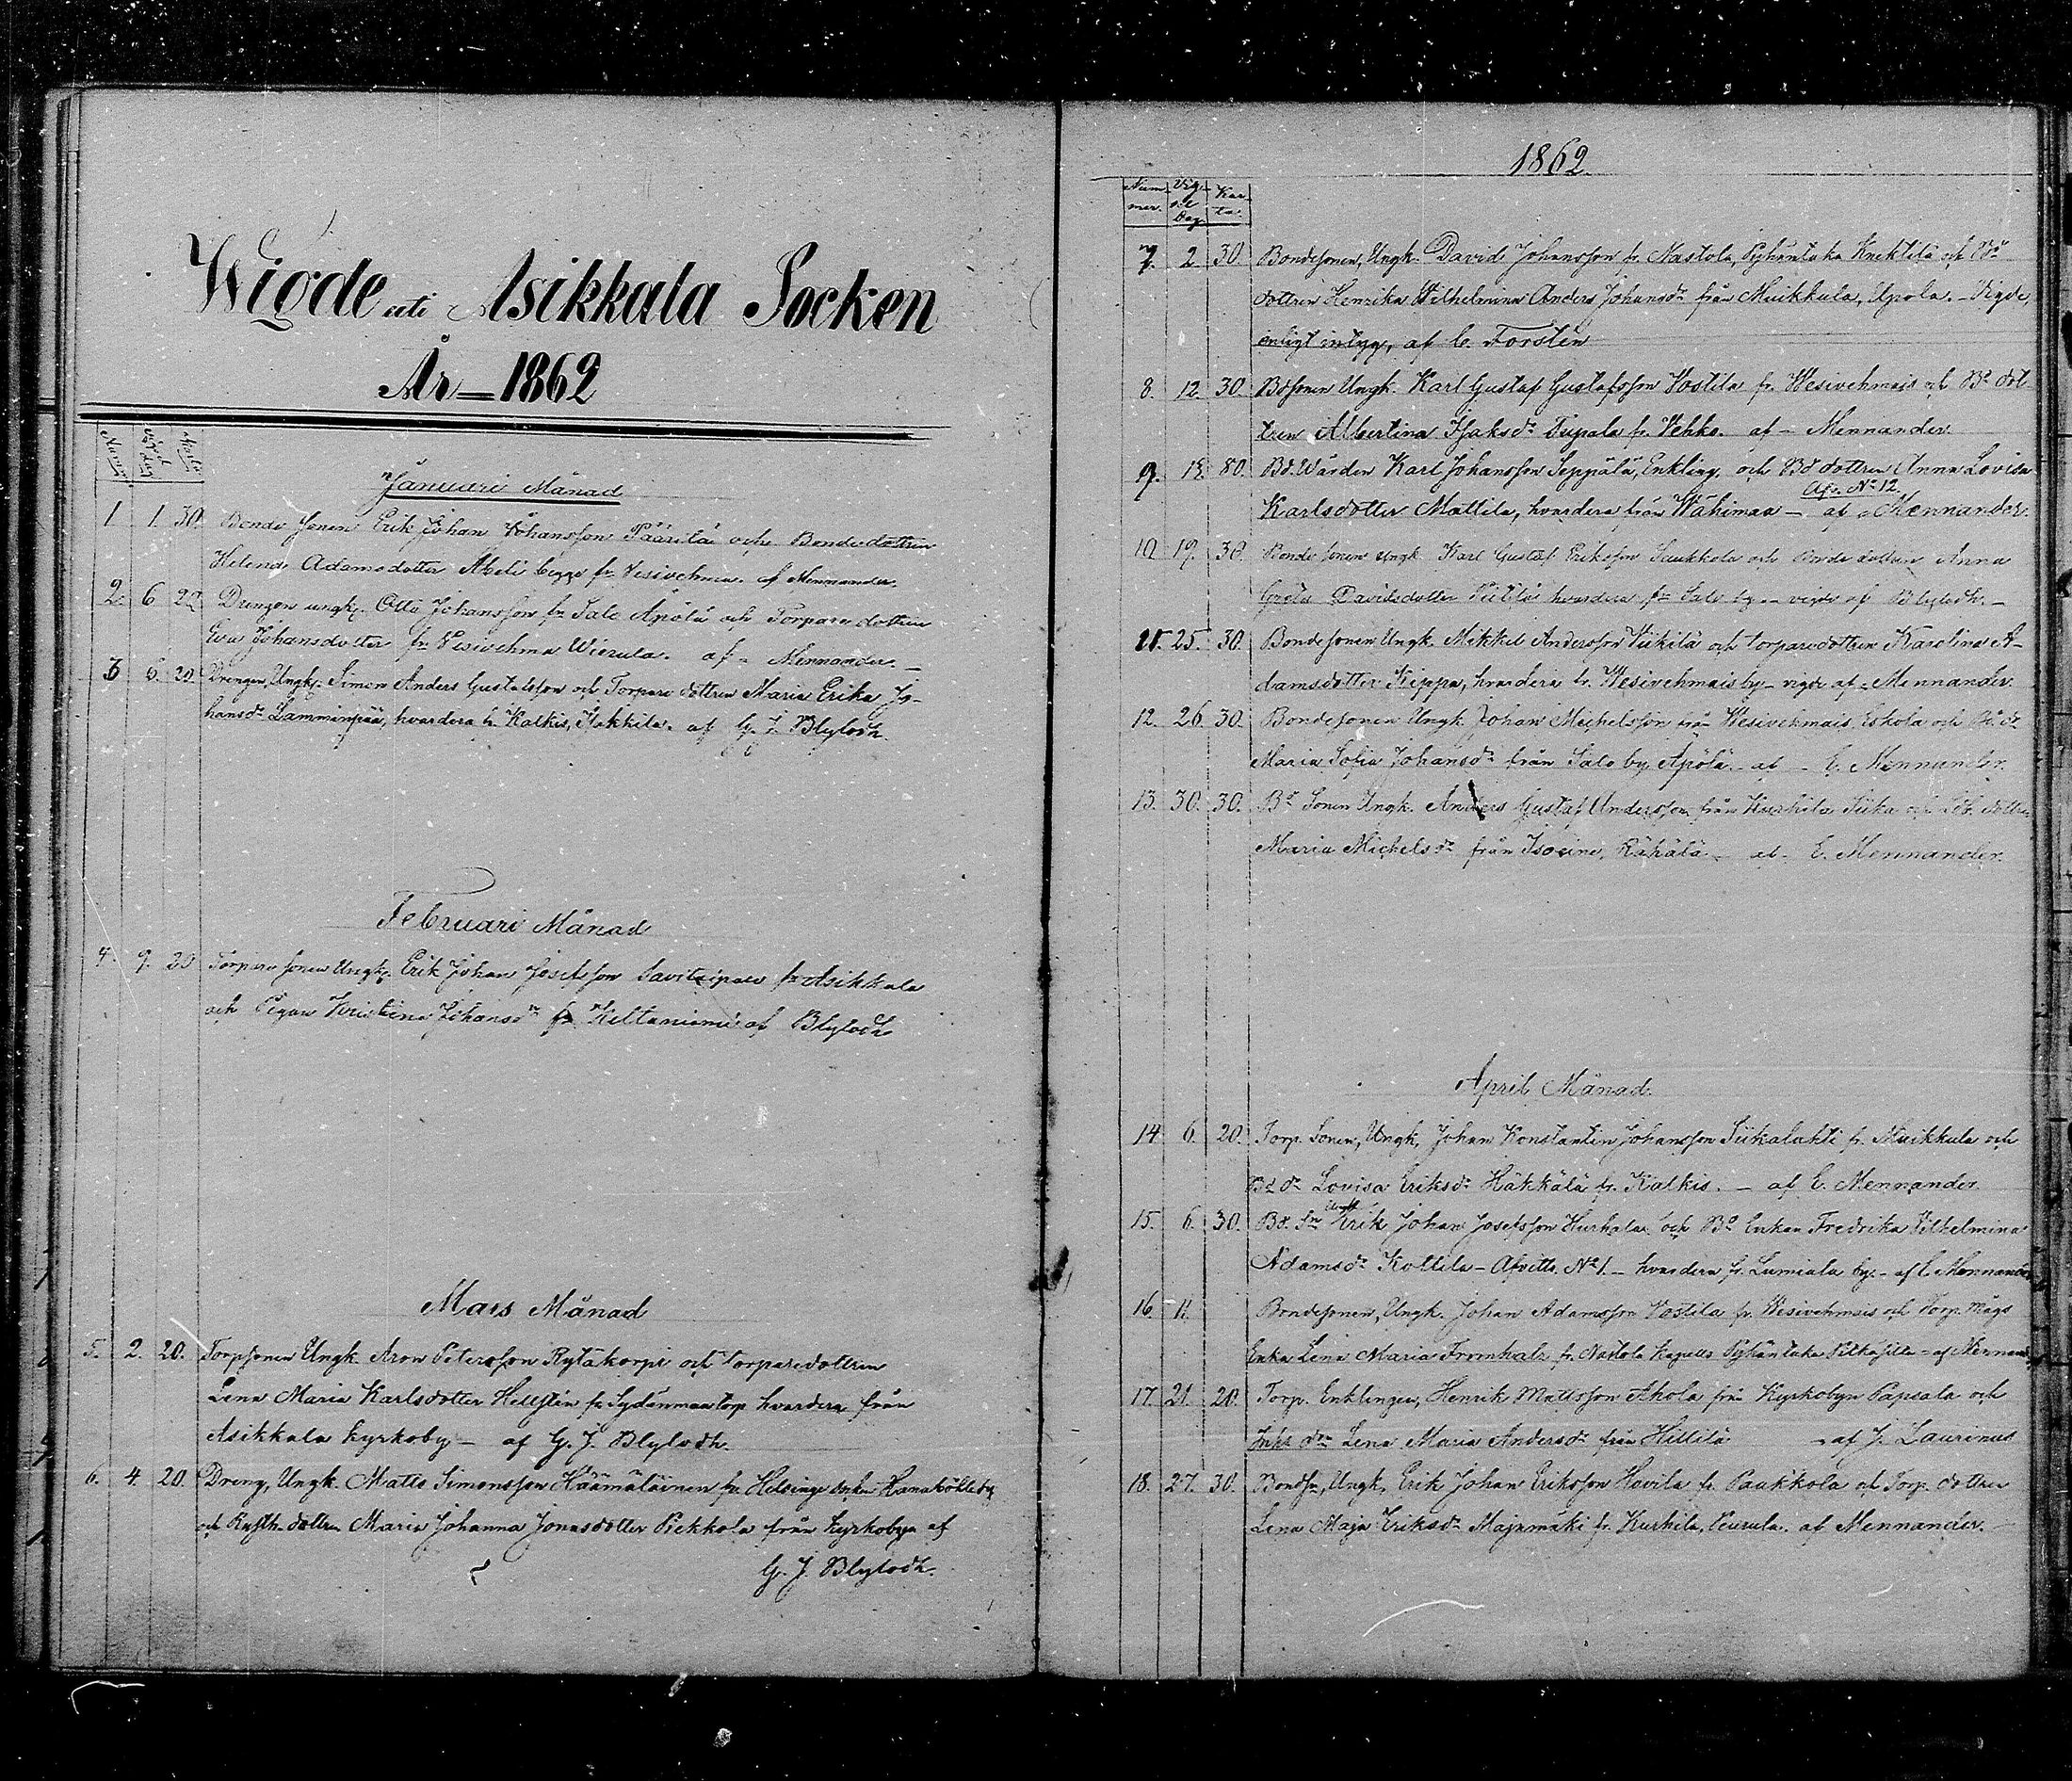 Wigde uti Asikkala Socken
År – 1862
Numer
Vigsel dag
Karta
Januari Månad
1. 1. 30. Bonde sonen Erik Johan Johansson Päärilä och Bondedottren
Helena Adamsdotter Abeli begge fr. Vesivehma. af Mennander.
2. 6. Drengen ungk. Otto Johansson fr Salo Äpölä och Torparedottren
Eva Johansdotter fr Vesivehma Wierula. af - Mennander. –
3 6. 20. Drengen, Ungk. Simon Anders Gustafsson och Torpare dottren Maria Erika Jo-
hansdr Lamminpää, hvardera fr. Kalkis, Hakkila. af G. J. Blylodh.
Februari Månad
4. 9. 20 Torpare sonen Ungk. Erik Johan Josefsson Savitaipale fr Asikkala
och Pigan Kristina Johansdr fr Keltaniemi af Blylodh
Mars Månad
5. 2. 20. Torpsonen Ungk. Aron Petersson Rytäkorpi och torparedottren
Lena Maria Karlsdotter Hellsten fr Sydänmaa torp hvardera från
Asikkala kyrkoby – af G. J. Blylodh.
6. 4. 20. Dreng, Ungk. Matts Simonsson Häämäläinen fr. Helsinge socken Hanaböle by
och Rusth. dottren Maria Johanna Jonasdotter Piekkola från kyrkobyn af
G. J. Blylodh.
1862.
Num-mer. Vig-sel Dag Kar-ta.
7. 2. 30. Bondesonen, Ungk. David Johansson fr. Nastola, Pyhäntaka Knektilä och Bd
dottren Henrika Wilhelmina Anders Johansdr från Muikkula, Upola. – Vigde,
enligt intyg, af C. Forstén
8. 12. 30. Bdsonen Ungk. Karl Gustaf Gustafsson Vostila fr. Wesivehmais och Bd dot-
tren Albertina Isaksdr Tupala fr. Vehko. af – Mennander.
9. 13. 80. Bd. Wärden Karl Johansson Seppälä, Enkling, och Bd dottren Anna Lovisa
Afv. No 12.
Karlsdotter Mattila, hvardera från Wähimaa – af – Mennander.
10. 19. 30. Bonde sonen Ungk Karl Gustaf Eriksson Saukkola och Bonde dottren Anna
Greta Davidsdotter hvardera fr Salo by – vigde af Blylodh. –
11. 25. 30. Bondesonen Ungk. Mikkel Andersson Viikilä och torparedottren Karolina A-
damsdotter Kippa, hvardera fr. Wesivehmais by – vigde af – Mennander.
12. 26. 30. Bondesonen Ungk. Johan Michelsson från Wesivehmais, Eskola och Bd. dr
Maria Sofia Johansdr från Salo by, Äpölä – af – E. Mennander.
13. 30. 30. Bd Sonen Ungk. Anders Gustaf Andersson från Kurhila Siika och dottren
Maria Michelsdr från Isoeino, Rähälä – af – E. Mennander.
April Månad.
14. 6. 20. Torp. Sonen, Ungk, Johan Konstantin Johansson Siikalahti fr. Muikkula och
Bd dr Lovisa Eriksdr Häkkälä fr. Kalkis. – af E. Mennander.
Ungk
15. 6. 30. Bd. Sn Erik Johan Josefsson Hurhala och Bd Enkan Fredrika Vilhelmina
Adamsdr Kottila – Afvittr. No 1. – hvardera fr. Lumiala by. – af E. Mennander
16. 11. Bondesonen, Ungk. Johan Adamsson Vostila fr. Wesivehmais och Torp. mågs
Enka Lena Maria Fromholz fr. Nastola kapells Pyhäntaka – af Mennand
17. 21. 20. Torp. Enklingen, Henrik Mattsson Ahola från Kyrkobyn Papsala och
Inhs drn Lena Maria Andersdr från Hillilä – af J. Laurinus
18. 27. 30. Bondsn, Ungk, Erik Johan Eriksson Hovila fr. Paakkola och Torp. dottren
Lena Maja Eriksdr Majamäki fr. Kurhila, Peurula. af Mennander.